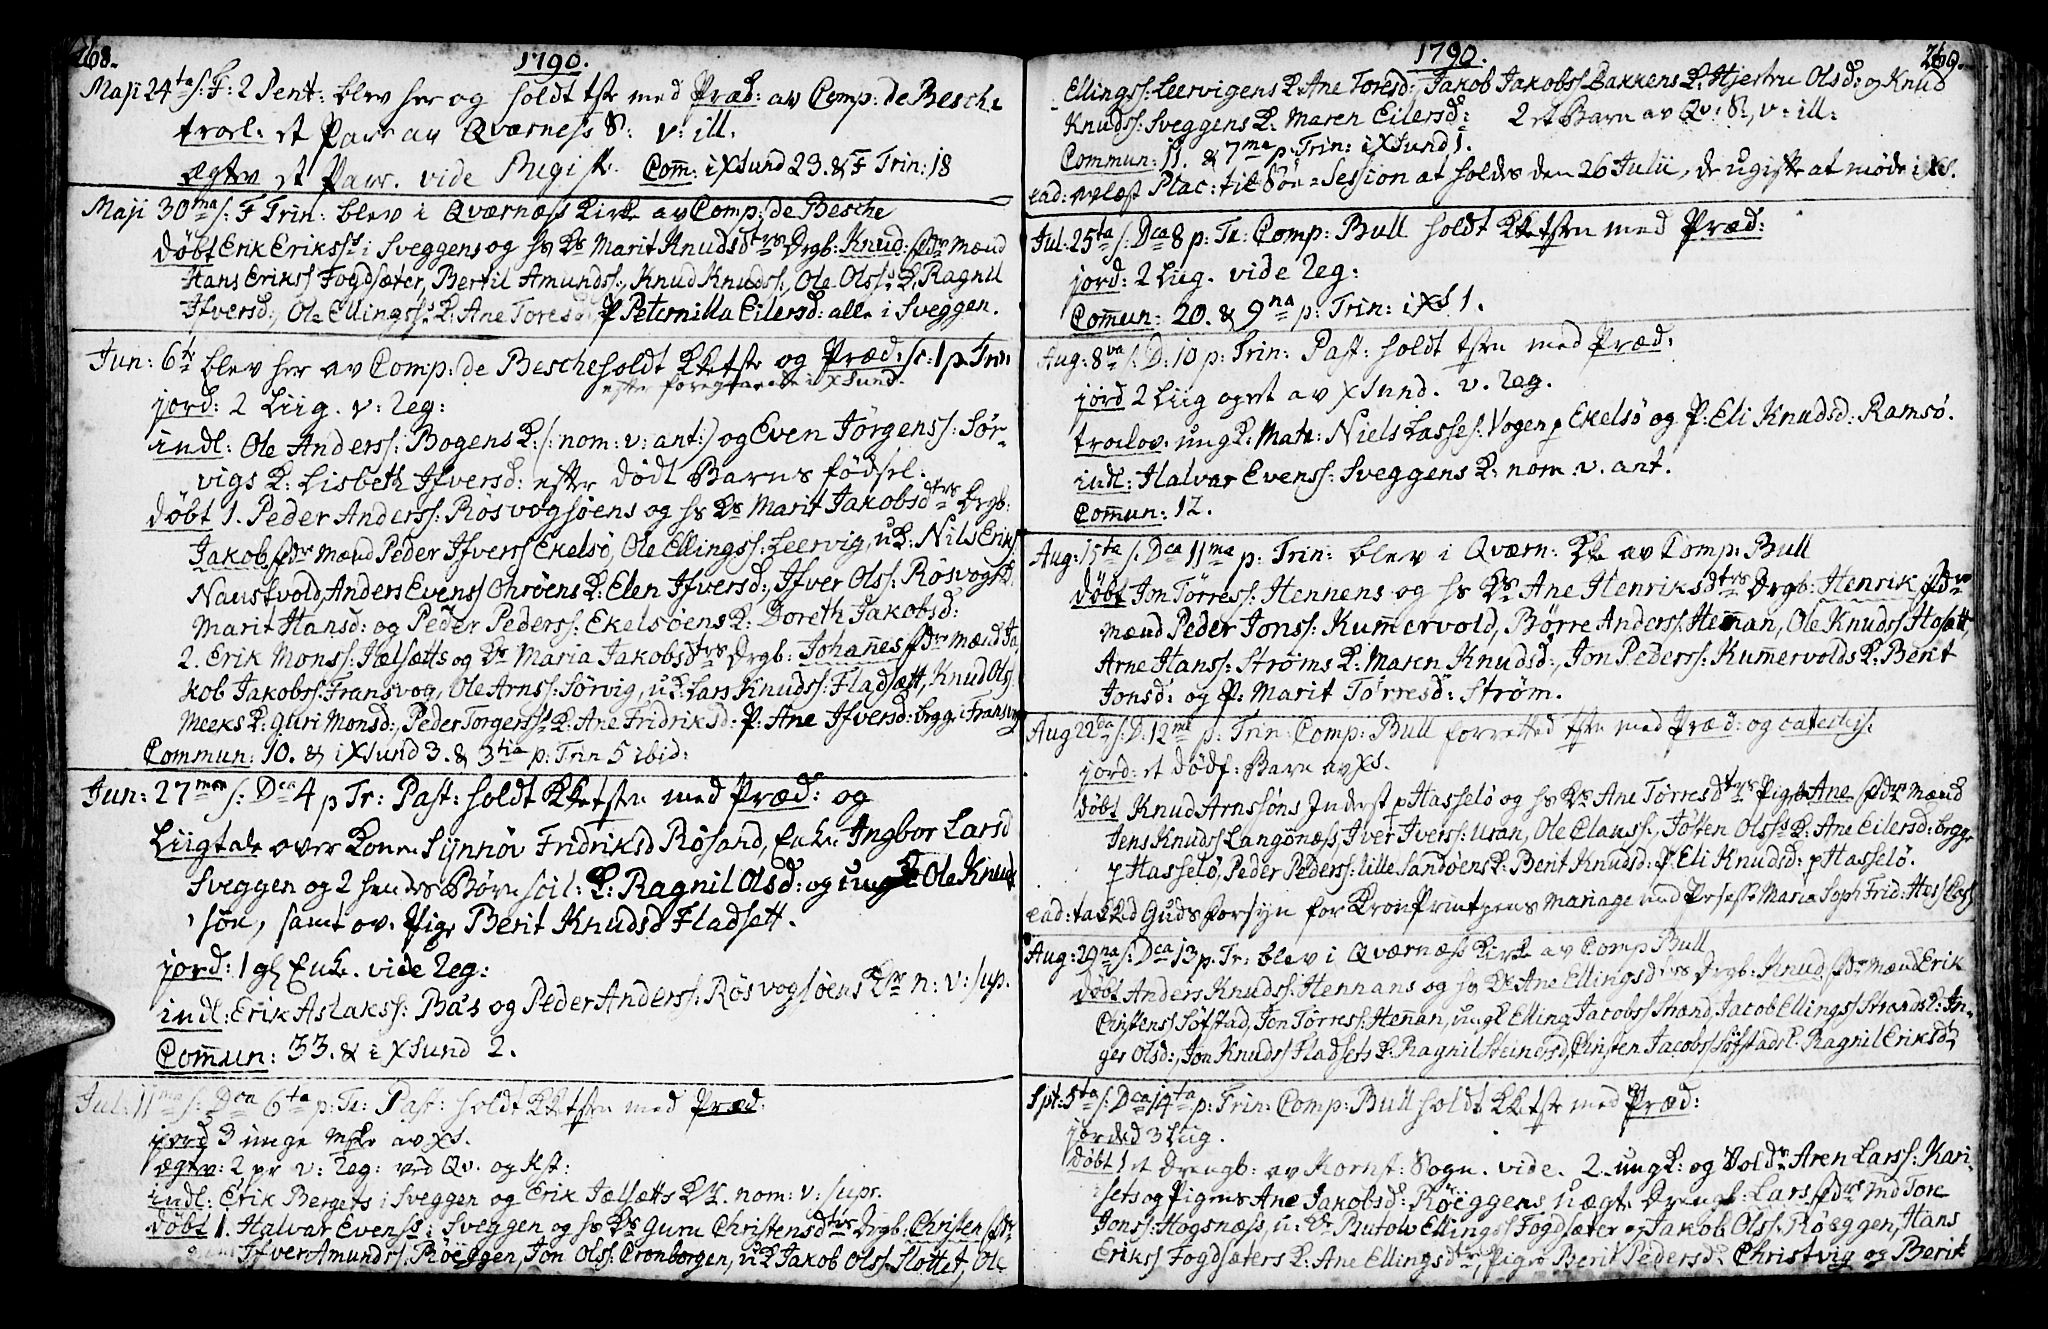 268.
1790.
Maji 24ta s: F: 2 Pent: blev her og holdt tste med Præd: av Comp: de Besche
trol: et Par av Qværness S: v: ill.
ægtev et Par. vide Regist: Com: i XSund 23. & F Trin: 18
Maji 30ma s: F Trin: blev i Qværnæss Kirke av Comp: de Besche
döbt Erik Erikss: i Sveggens og hs Ks Marit Knudsdtrs Drgb: Knud: fdr Mænd
Hans Erikss Fogdsæter, Bertil Amundss:, Knud Knudss:, Ole Olss: K: Ragnil
Ifversd:, Ole Ellingss: K: Ane Toresd P Peternilla Eilersd: alle i Sveggen.
Jun: 6te blev her av Comp: de Besche holdt Kketste og Præd: s: 1 p. Trin
efter foregaaende i XSund.
jord: 2 Liig. v: Reg:
indl: Ole Anderss: Bogens K: (: nom: v: ant:) og Even Jörgenss: Sör-
vigs K: Lisbeth Ifversd: efter död Barns födsel.
döbt 1. Peder Anderss: Rösvogsöens og hs Ks Marit Jakobsdtrs Drgb:
Jakob, fdr Mænd Peder Ifverss Ekelsö, Ole Ellingss: Leervig, uK: Nils Eriks
Naustvold, Anders Evenss Ohröens K: Elen Ifversd:, Ifver Olss: Rösvogs K.
Marit Hansd: og Peder Pederss: Ekelsöens K: Doreth Jakobsd:
2. Erik Monss: Jælsætts og Ks Maria Jakobsdtrs Drgb: Johanes fdr Mænd Ja
kob Jakobss: Fransvog, Ole Arnss: Sörvig, uK: Lars Knudss: Fladsætt, Knud Olss
Meeks K: Guri Monsd:, Peder Torgerss: K: Ane Fridriksd: P: Ane Ifversd: begge i Fransvog
Commun: 10. & i XSund 3. & 3tia p: Trin 5 ibid:
Jun: 27ma s: Dca 4 p Tr: Past: holdt Kketste med Præd: og
Liigtale over Konen Synnöv Fridriksd Rösand, Enke Ingbor Larsd
Sveggen og 2 hendes Börn scil: K: Ragnil Olsd: og ungK Ole Knud
sön, samt ov. Pige Berit Knudsd Fladsett.
jord: 1 gl Enk. vide Reg:
indl: Erik Aslakss: Bås og Peder Anderss: Rösvogsöens Kr n: v: sup.
Comun: 33. & i XSund 2.
Jul: 11ma s: Dca 6ta p: Tr: Past: holdt Kketste med Præd:
jord 3 unge Mske av XS.
ægtev: 2 pr v: Reg: ved Qv. og Kst:
indl: Erik Bergets i Sveggen og Erik Jælsætts KK. nom: v: supr.
döbt 1. Halvar Evenss: i Sveggen og hs Ks Guru Christensdtrs Drgb: Christen fdr
Ifver Amundss: Röeggen, Jon Olss: Cronborgen, uK Jakob Olss: Slottet, Ole
1790.
269.
Ellingss: Leervigens K: Ane Toresd:, Jakob Jakobss Bakkens K: Hjestru Olsd: og Knud
Knudss: Sveggens K: Maren Eilersd: 2 et Barn av Qv: S:, v: ill:
Commun: 11. & 7ma p: Trin: i XSund 1.
ead: oplæst Plac: til Söe=Session at holdes den 26 Julii, de ugifte at møde i XS.
Jul: 25ta s: Dca 8 p: Tr: Comp: Bull holdt Kketste med Præd:
jord: 2 Liig. vide Reg:
Comun: 20. & 9na p: Trin: i XS 1.
Aug: 8va s: D: 10 p: Trin: Past: holdt tste med Præd:
jord 2 Liig av XSund. v. Reg.
trolov. ungK. Matr: Niels Lasses: Vogen p Ekelsö og P: Eli Knudsd: Ramsö.
indl: Halvar Evenss: Sveggens K: nom. v. ant.
Comun: 12.
Aug: 15ta s: Dca 11ma p: Trin: blev i Qværn: Kke av Comp: Bull
döbt Jon Törress: Hennens og hs Ks Ane Henriksdtrs Drgb: Henrik fdr
Mænd Peder Jonss: Kumervold, Börre Anderss: Henan, Ole Knudss Hosætt,
Arne Hanss: Ströms K: Maren Knudsd:, Jon Pederss: Kumervolds K: Berit
Jonsd: og P: Marit Törresd: Ström.
Aug 22da s: D: 12ma p: Trin: Comp: Bull forrettede tste med Præd: og catechis:
jord: et dödf: Barn av XS.
döbt Knud Arnsöns Inderst p Hasselö og hs Ks Ane Törresdtrs Pigb Ane fdr Mænd
Jens Knudss Langönæss, Iver Iverss: Uran, Ole Clauss:, Josten Olss: K: Ane Eilersd: begge
p Hasselö, Peder Pederss: lille Sandöens K: Berit Knudsd: P: Eli Knudsd: p Hasselö.
ead: taksed Guds forsyn for KronPrintzens Mariage med Prsesse Maria Soph Frid: Hess Cass
Aug: 29na s: Dca 13 p: Tr: blev i Qværnæss Kirke av Comp Bull
döbt Anders Knudss: Hennans og hs Ks Ane Ellingsdtrs Drgb: Knud fdr Mænd Erik
Christenss Söfstad, Jon Törress: Henan, ungK Elling Jacobss Strand, Jacob Ellingss Strands K: In-
ger Olsd:, Jon Knudss Fladsets K: Ragnil Steinersd, Christen Jacobss Söfstads K. Ragnil Eriksdtr
Spt: 5ta s: Dca 14ta p: Trin: Comp: Bull holdt Kketste med Præd:
jorded 3 Liig.
döbt 1 et drengb: av Kornst: Sogn. vide. 2. ungK: og Soldr Aren Larss: Kari-
sets og Pigens Ane Jakobsd: Röeggens uægte Drengb: Lars fdr Md Tore
Jonss: Hogsnæss, u: K: Rutow Ellingss Fogdsæter og Jakob Olss: Röeggen, Hans
Erikss Fogdsæters K: Ane Ellingsdtr, Pigen Berit Pedersd: Christvig og Berit